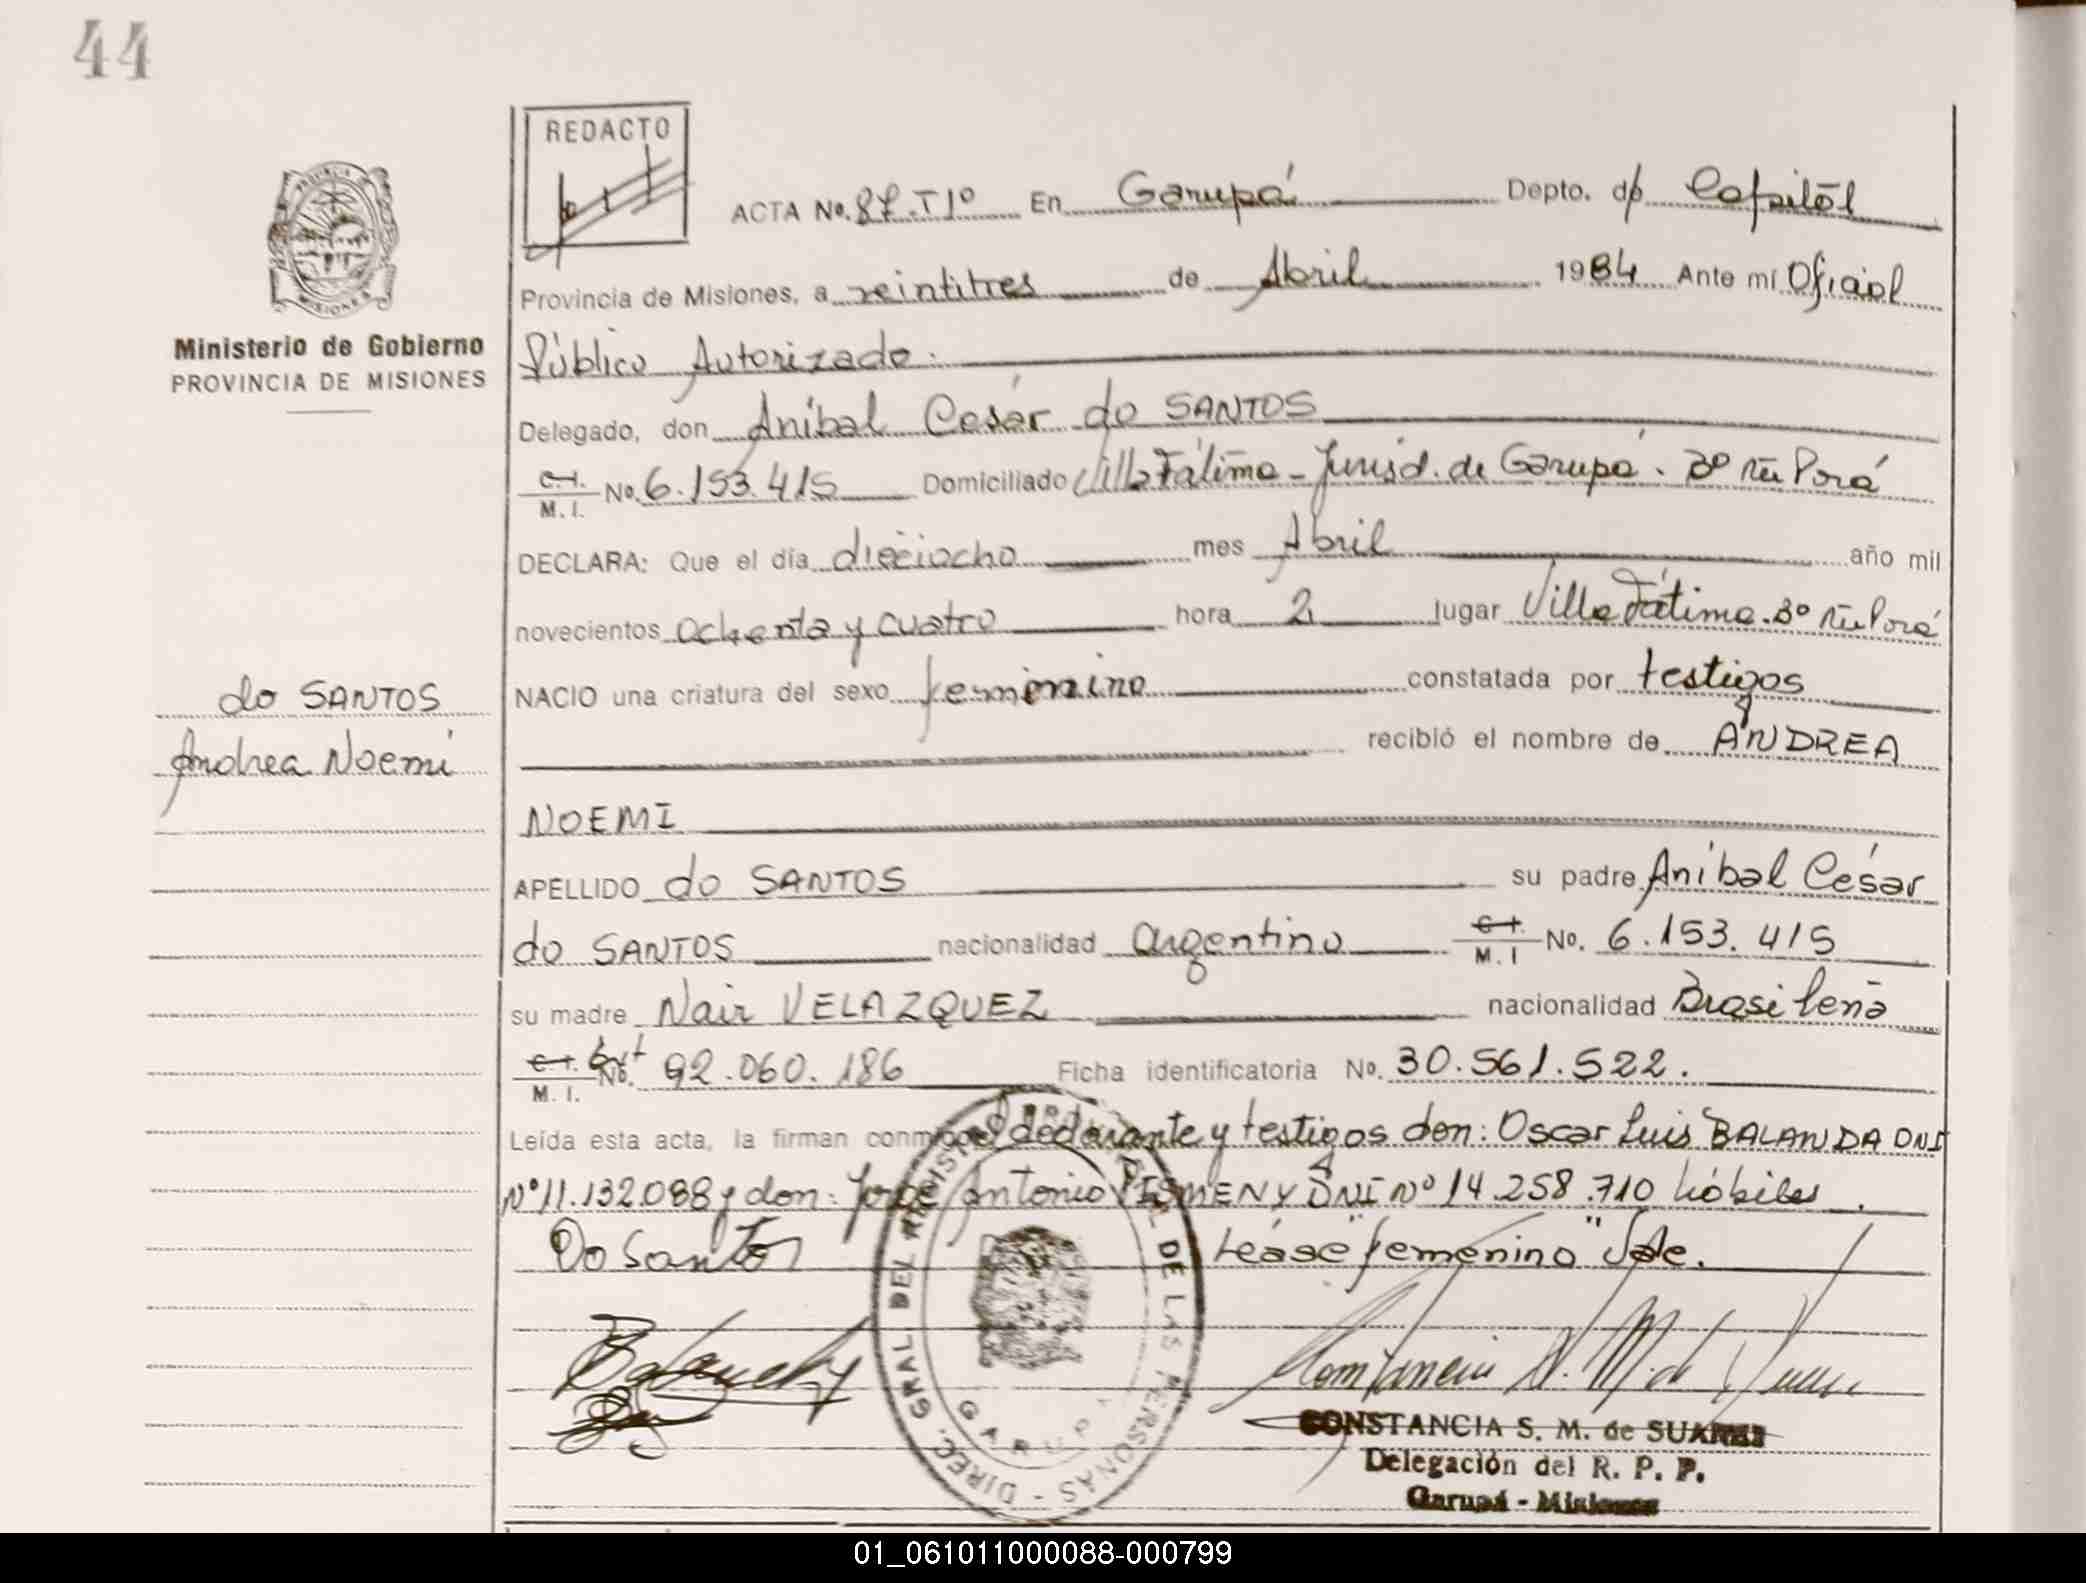 44
REDACTO
ACTA No. 87. T1º En Garupá Depto. de Capital
Provincia de Misiones, a veintitres de Abril 1984 Ante mí Oficial
Ministerio de Gobierno
PROVINCIA DE MISIONES
Público Autorizado.
Delegado, don Aníbal César do SANTOS
C.I. M.I. No. 6.153.415 Domiciliado Villa Fátima - Jurisd. de Garupá. Bº Ñu Porá
DECLARA: Que el día dieciocho mes Abril año mil
novecientos ochenta y cuatro hora 2 lugar Villa Fátima. Bº Ñu Porá
do SANTOS
Andrea Noemí
NACIO una criatura del sexo femenino constatada por testigos
recibió el nombre de ANDREA
NOEMI
APELLIDO do SANTOS su padre Aníbal César
do SANTOS nacionalidad argentino C.I. M.I No. 6.153.415
su madre Nair VELAZQUEZ nacionalidad Brasileña
C.I. M.I. No. 92.060.186 Ficha identificatoria No. 30.561.522.
Leída esta acta, la firman conmigo el declarante y testigos don: Oscar Luis BALANDA DNI
Nº 11.132.088 y don: Jorge Antonio PISMENY DNI Nº 14.258.710 hábiles.
Do Santos Léase "femenino" Vale.
DIREC. GRAL DEL REGISTRO PROVINCIAL DE LAS PERSONAS - GARUPA
CONSTANCIA S. M. de SUAREZ
Delegación del R. P. P.
Garupá - Misiones
01_061011000088-000799